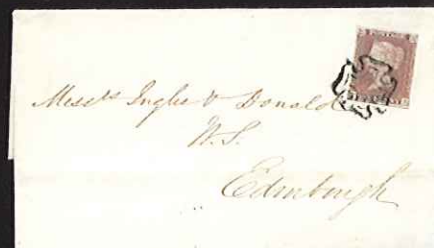 POSTAGE
Messrs Inglis & Donald
W.S.
Edinburgh